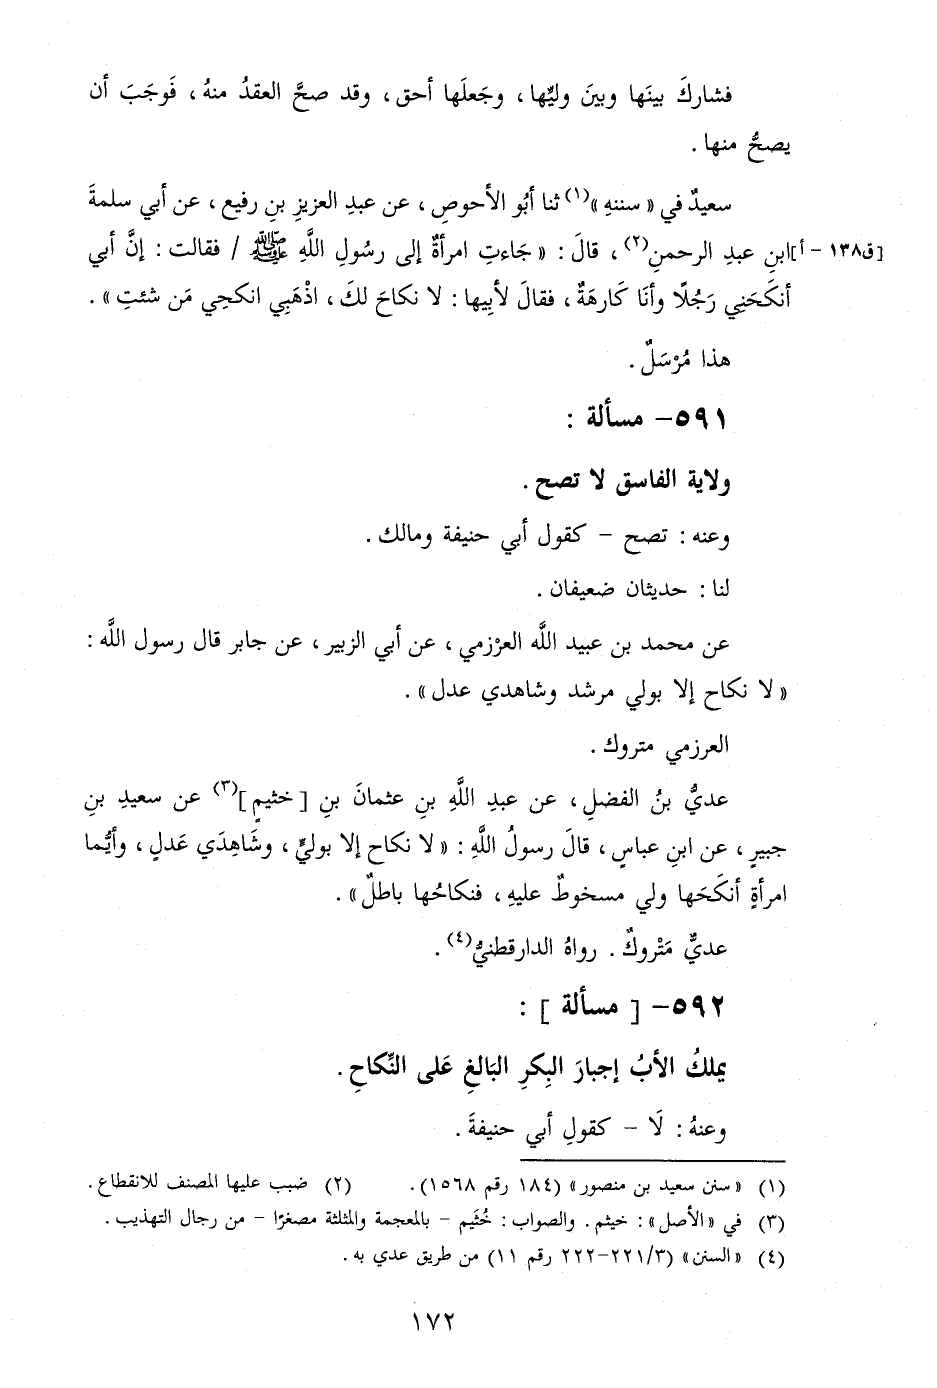 فشاركَ بينَها وبينَ وليِّها ، وجَعلَها أحق ، وقد صحَّ العقدُ منهُ ، فَوجَبَ أن
يصحُّ منها .
سعيدٌ في « سننهِ »(١) ثنا أبُو الأحوصِ ، عن عبدِ العزيزِ بنِ رفيع ، عن أبي سلمةَ
[ق١٣٨ - أ]ابنِ عبدِ الرحمنِ(٢) ، قالَ : « جَاءتِ امرأةٌ إلى رسُولِ اللَّهِ ﷺ / فقالت : إنَّ أبي
أنكَحَنِي رَجُلًا وأنَا كَارهَةٌ ، فقالَ لأبِيها : لا نكاحَ لكَ ، اذْهَبِي انكحِي مَن شئتِ » .
هذا مُرْسَلٌ .
٥٩١- مسألة :
ولاية الفاسق لا تصح .
وعنه : تصح - كقول أبي حنيفة ومالك .
لنا : حديثان ضعيفان .
عن محمد بن عبيد اللَّه العرْزمي ، عن أبي الزبير ، عن جابر قال رسول اللَّه :
« لا نكاح إلا بولي مرشد وشاهدي عدل » .
العرزمي متروك .
عديُّ بنُ الفضلِ ، عن عبدِ اللَّهِ بنِ عثمانَ بنِ [ خثيمٍ ](٣) عن سعيدِ بنِ
جبيرٍ ، عن ابنِ عباسٍ ، قالَ رسولُ اللَّهِ : « لا نكاح إلا بوليٍّ ، وشَاهِدَي عَدلٍ ، وأيُّما
امرأةٍ أنكَحَها ولي مسخوطٌ عليهِ ، فنكاحُها باطلٌ » .
عديٌّ مَتْروكٌ . رواهُ الدارقطنيُّ(٤) .
٥٩٢- [ مسألة ] :
يملكُ الأبُ إجبارَ البِكرِ البَالغِ عَلى النِّكاحِ .
وعنهُ : لَا - كقولِ أبي حنيفةَ .
(١) « سنن سعيد بن منصور » (١٨٤ رقم ١٥٦٨) . (٢) ضبب عليها المصنف للانقطاع .
(٣) في « الأصل » : خيثم . والصواب : خُثَيم - بالمعجمة والمثلثة مصغرًا - من رجال التهذيب .
(٤) « السنن » (٣/ ٢٢١-٢٢٢ رقم ١١) من طريق عدي به .
١٧٢